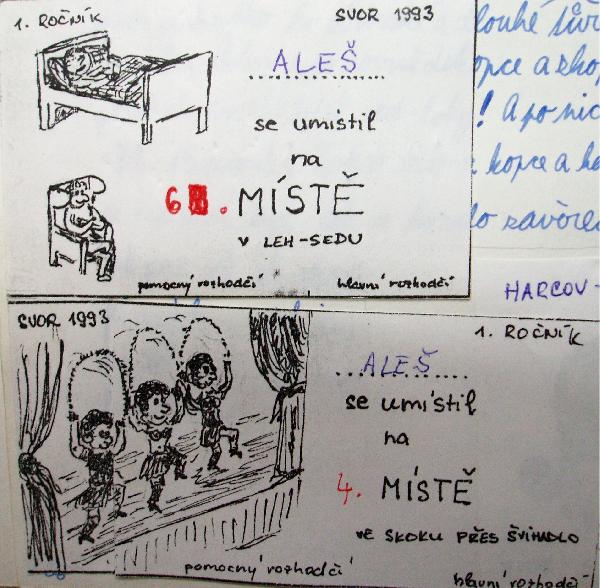 1. ROČNÍK
SVOR 1993
ALEŠ
se umístil
na
6. MÍSTĚ
v LEH-SEDU
pomocný rozhodčí
hlavní rozhodčí
dlouhé
kopce a
! A po
kopce a
HARCOV-
SVOR 1993
1. ROČNÍK
ALEŠ
se umístil
na
4. MÍSTĚ
VE SKOKU PŘES ŠVIHADLO
pomocný rozhodčí
hlavní rozhodčí